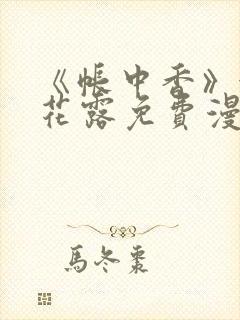 《帐中香》
花露免費漫
馬冬棗